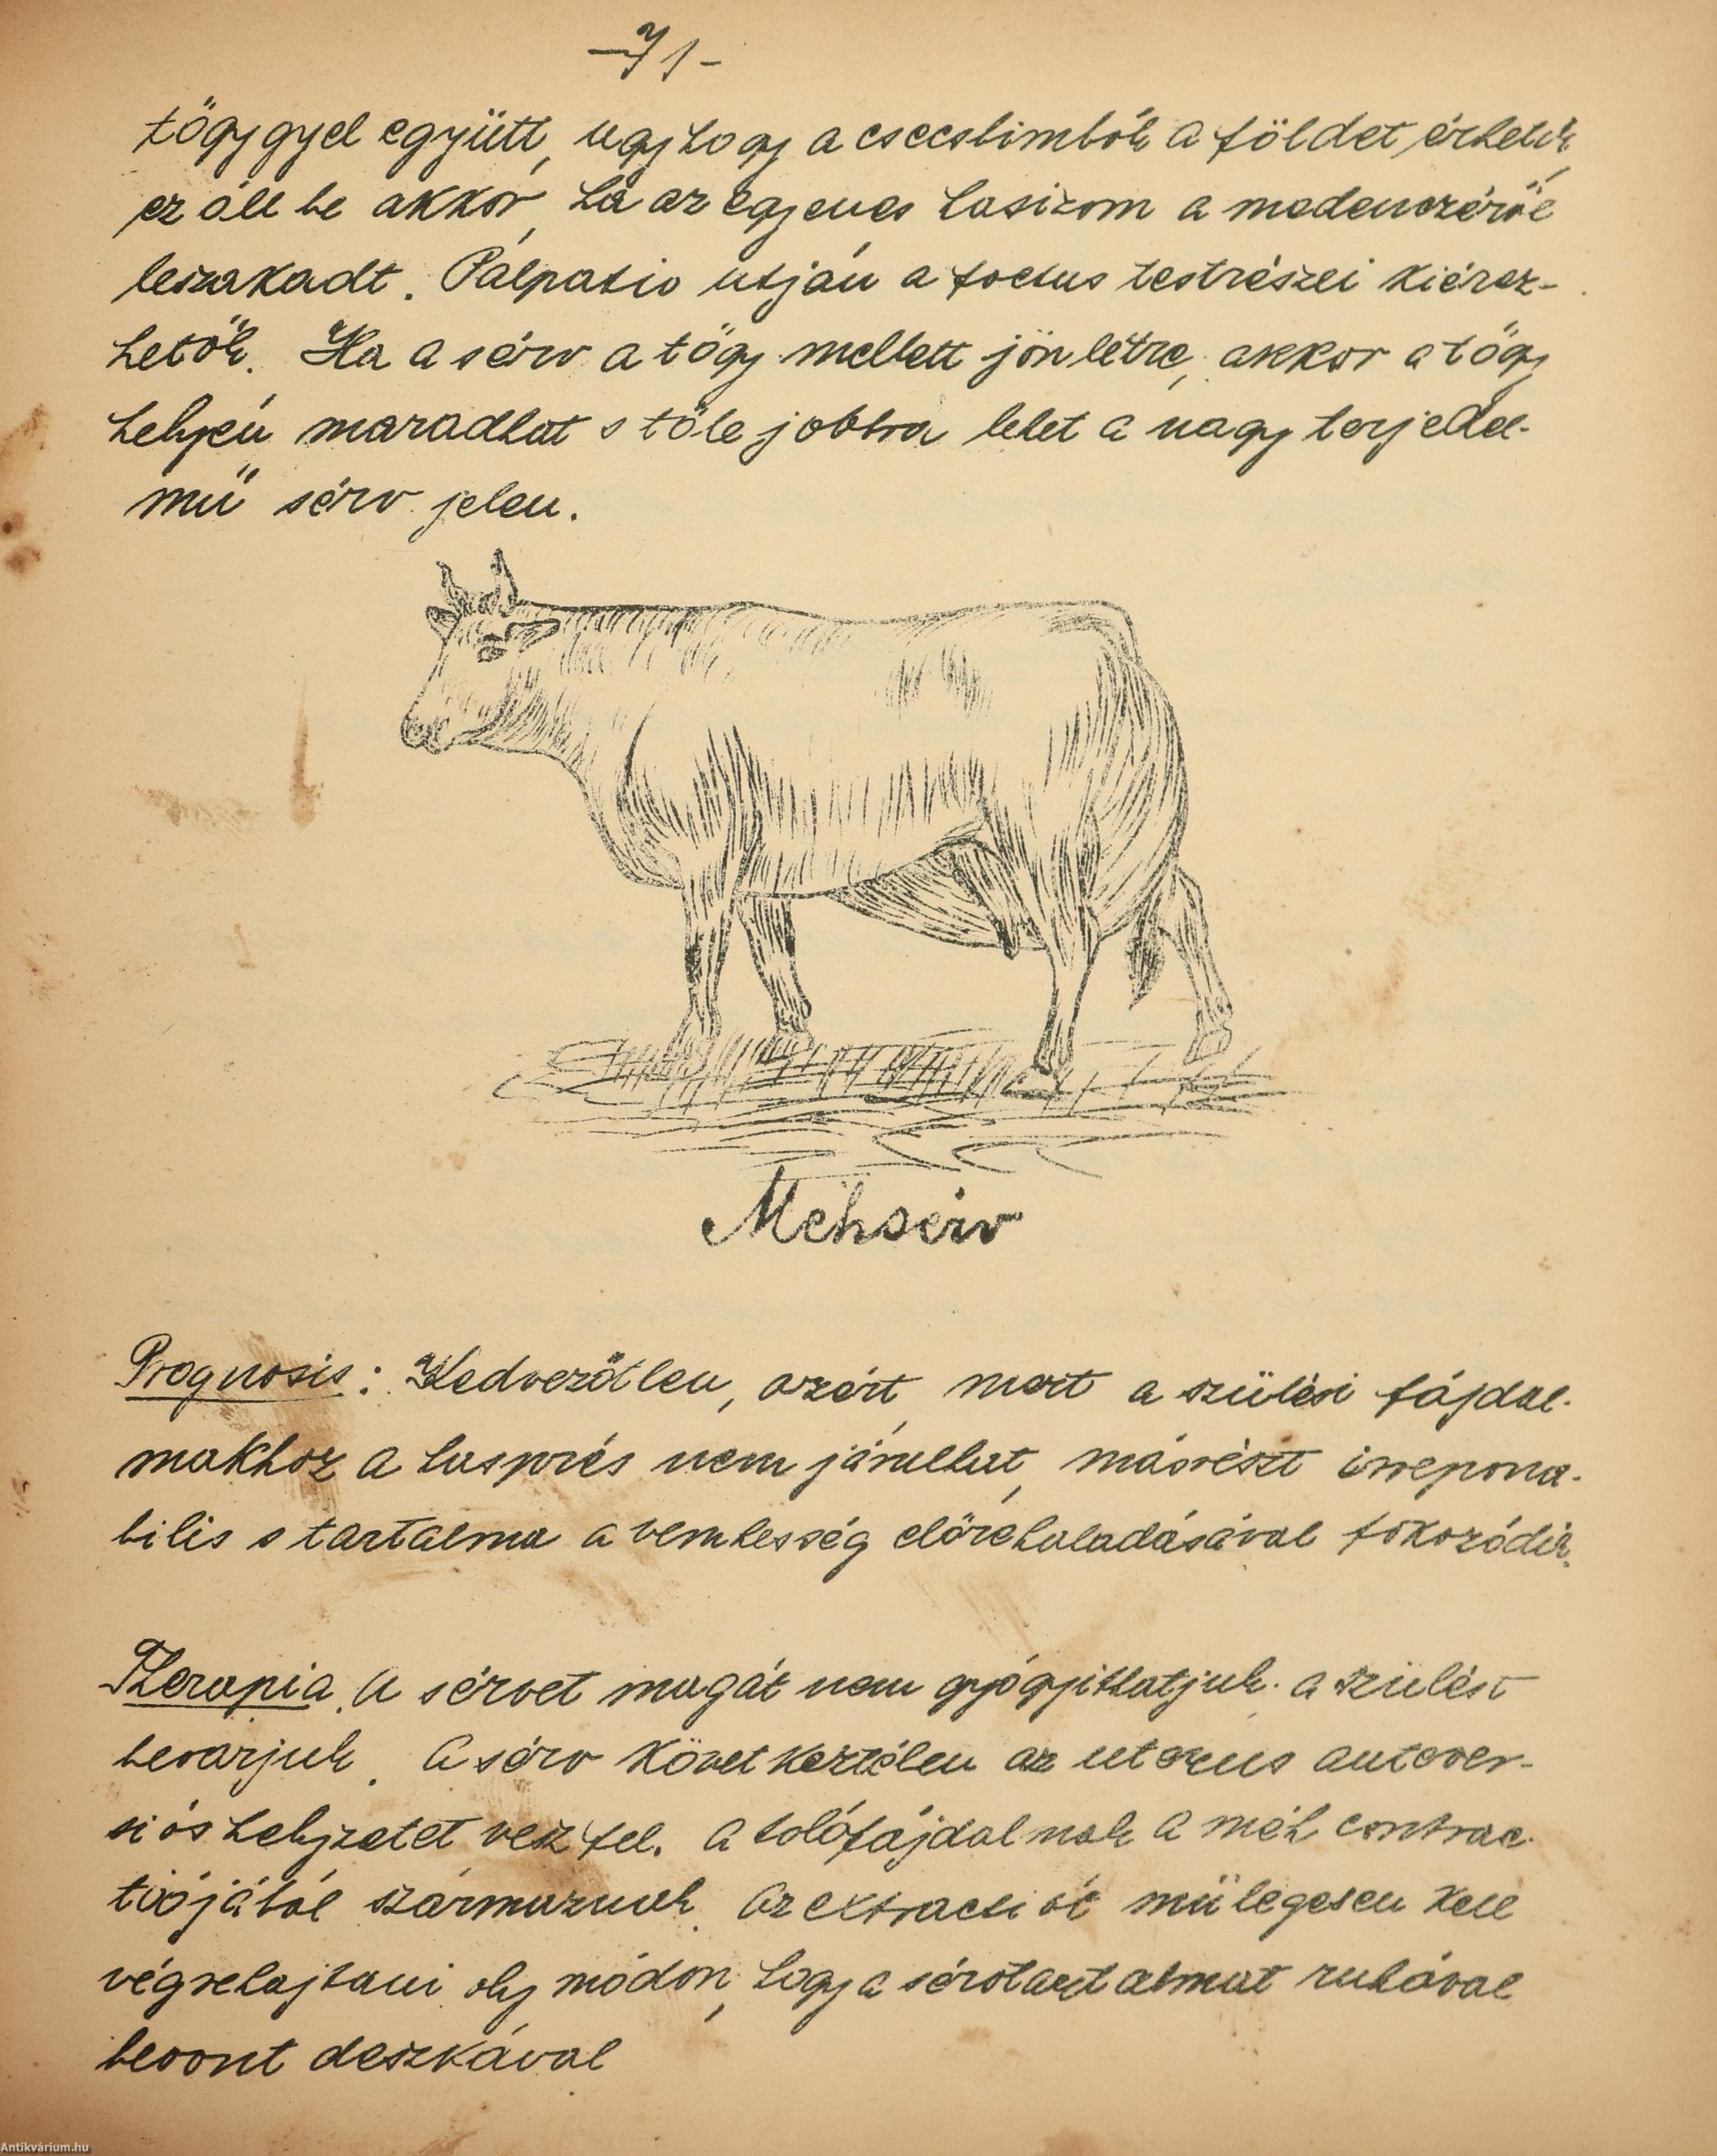 -71-
tőgygyel együtt, ugyhogy a csecsbimbók a földet érhetik,
ez áll be akkor, ha az egyenes hasizom a medenczéről
leszakadt. Palpatio utján a foetus testrészei kiérez-
hetők. Ha a sérv a tőgy mellett jön létre, akkor a tőgy
helyén maradhat s tőle jobbra lehet a nagy terjedel-
mű sérv jelen.
Méhsérv
Prognosis: Kedvezőtlen, azért, mert a szülési fájdal-
makhoz a hasprés nem járulhat, másrészt irrepona-
bilis s tartalma a vemhesség előrehaladásával fokozódik.
Therapia. A sérvet magát nem gyógyithatjuk. a szülést
bevárjuk. A sérv következtében az uterus antever-
siós helyzetet vesz fel. A tolófájdalmak a méh contrac-
tiójából származnak. Az extractiót mülegesen kell
végrehajtani oly módon, hogy a sérvtartalmat ruhával
bevont deszkával
Antikvárium.hu